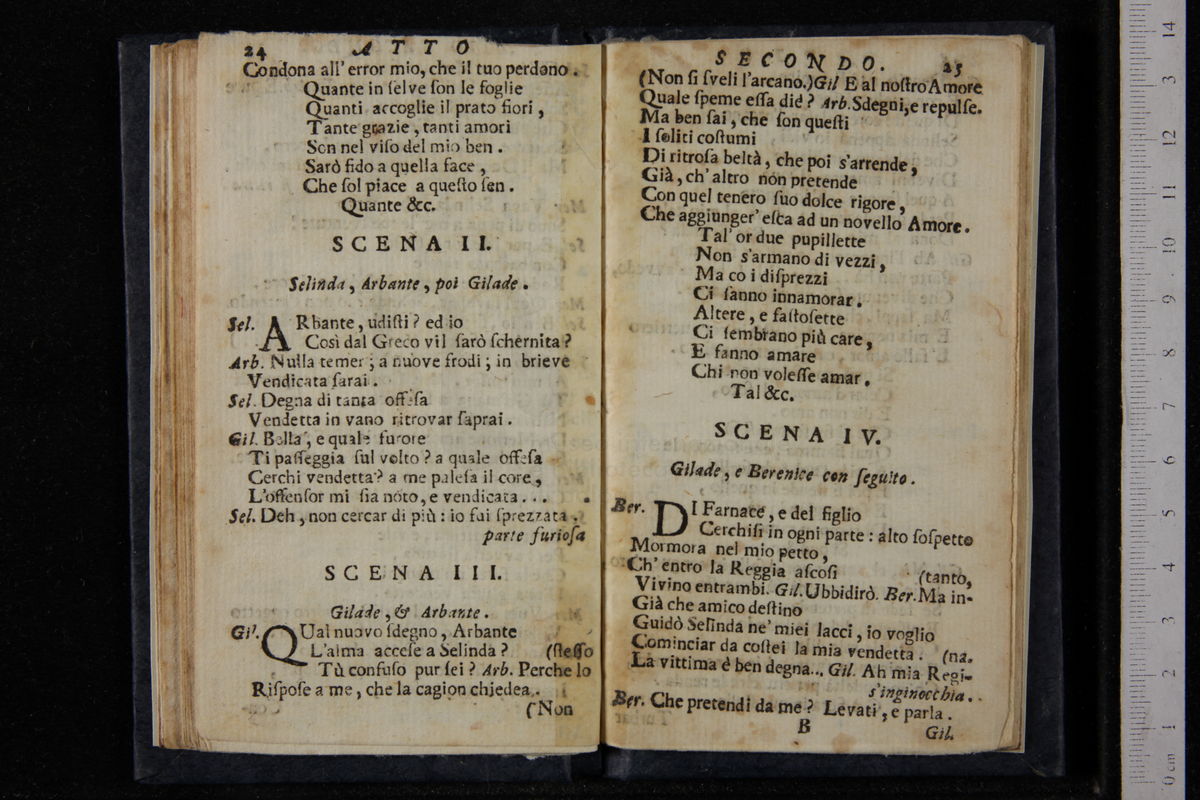 24 ATTO
Condona all' error mio, che il tuo perdono.
Quante in ſelve ſon le foglie
Quanti accoglie il prato fiori,
Tante grazie, tanti amori
Son nel viſo del mio ben.
Sarò fido a quella face,
Che ſol piace a queſto ſen.
Quante &c.
SCENA II.
Selinda, Arbante, poi Gilade.
Sel. ARbante, udiſti? ed io
Così dal Greco vil ſarò ſchernita?
Arb. Nulla temer; a nuove frodi; in brieve
Vendicata ſarai.
Sel. Degna di tanta offeſa
Vendetta in vano ritrovar ſaprai.
Gil. Bella, e quale furore
Ti paſſeggia ſul volto? a quale offeſa
Cerchi vendetta? a me paleſa il core,
L'offenſor mi ſia noto, e vendicata...
Sel. Deh, non cercar di più: io fui ſprezzata.
parte furioſa
SCENA III.
Gilade, & Arbante.
Gil. QUal nuovo ſdegno, Arbante
L'alma acceſe a Selinda? (ſteſſo
Tù confuſo pur ſei? Arb. Perche lo
Riſpoſe a me, che la cagion chiedea.
(Non
SECONDO. 25
(Non ſi ſveli l'arcano.) Gil E al noſtro Amore
Quale ſpeme eſſa diè? Arb. Sdegni, e repulſe.
Ma ben ſai, che ſon queſti
I ſoliti coſtumi
Di ritroſa beltà, che poi s'arrende,
Già, ch' altro non pretende
Con quel tenero ſuo dolce rigore,
Che aggiunger' eſca ad un novello Amore.
Tal' or due pupillette
Non s'armano di vezzi,
Ma co i diſprezzi
Ci fanno innamorar.
Altere, e faſtoſette
Ci ſembrano più care,
E fanno amare
Chi non voleſſe amar.
Tal &c.
SCENA IV.
Gilade, e Berenice con ſeguito.
Ber. DI Farnace, e del figlio
Cerchiſi in ogni parte: alto ſoſpetto
Mormora nel mio petto,
Ch' entro la Reggia aſcoſi (tanto,
Vivino entrambi. Gil. Ubbidirò. Ber. Ma in-
Già che amico deſtino
Guidò Selinda ne' miei lacci, io voglio
Cominciar da coſtei la mia vendetta. (na.
La vittima è ben degna... Gil. Ah mia Regi-
s'inginocchia.
Ber. Che pretendi da me? Levati, e parla.
B
Gil.
0 cm 1 2 3 4 5 6 7 8 9 10 11 12 3 14